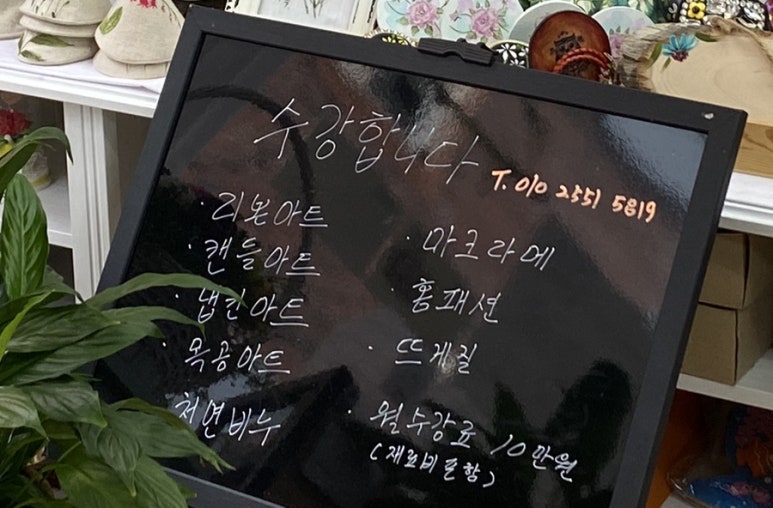 수강합니다
T. 010 2551 5819
· 리본아트
· 캔들아트
· 냅킨아트
· 목공아트
천연비누
· 마크라메
· 홈패션
· 뜨게질
· 월수강료 10만원
(재료비포함)